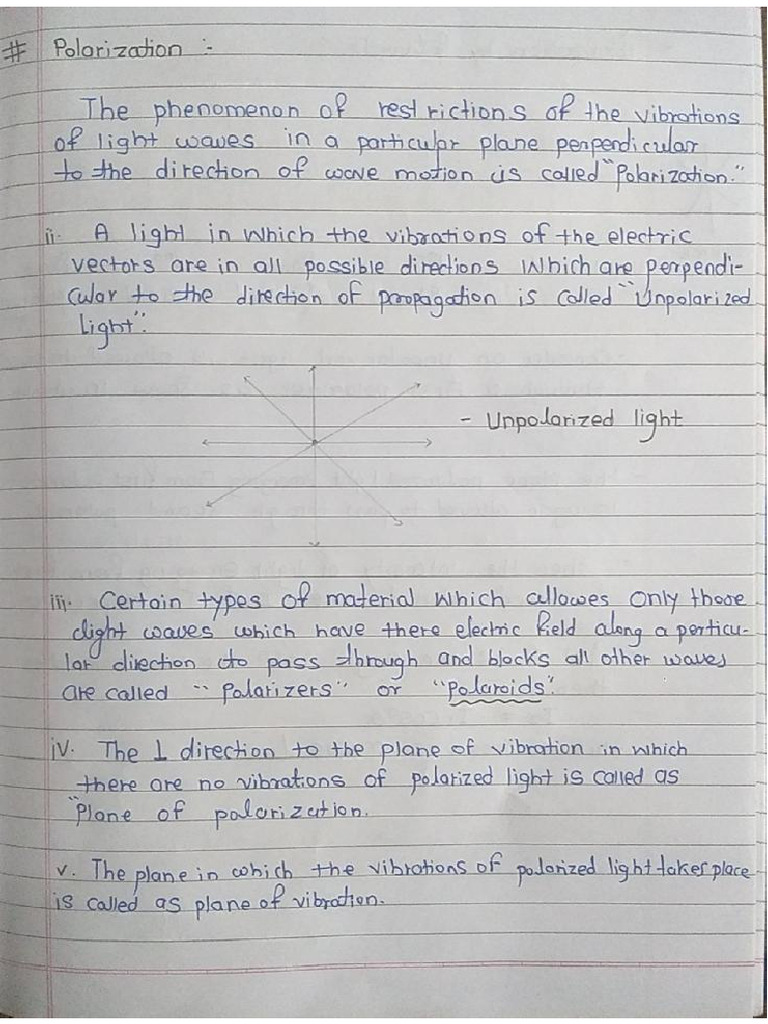 # Polarization :-
The phenomenon of restrictions of the vibrations
of light waves in a particular plane perpendicular
to the direction of wave motion is called "Polarization."
ii. A light in which the vibrations of the electric
vectors are in all possible directions which are perpendi-
cular to the direction of propagation is called "Unpolarized
Light".
- Unpolarized light
iii. Certain types of material which allowes only those
light waves which have there electric field along a perticu-
lar direction to pass through and blocks all other waves
are called "Polarizers" or "Polaroids".
iv. The ⊥ direction to the plane of vibration in which
there are no vibrations of polarized light is called as
"Plane of polarization.
v. The plane in which the vibrations of polarized light takes place
is called as plane of vibration.